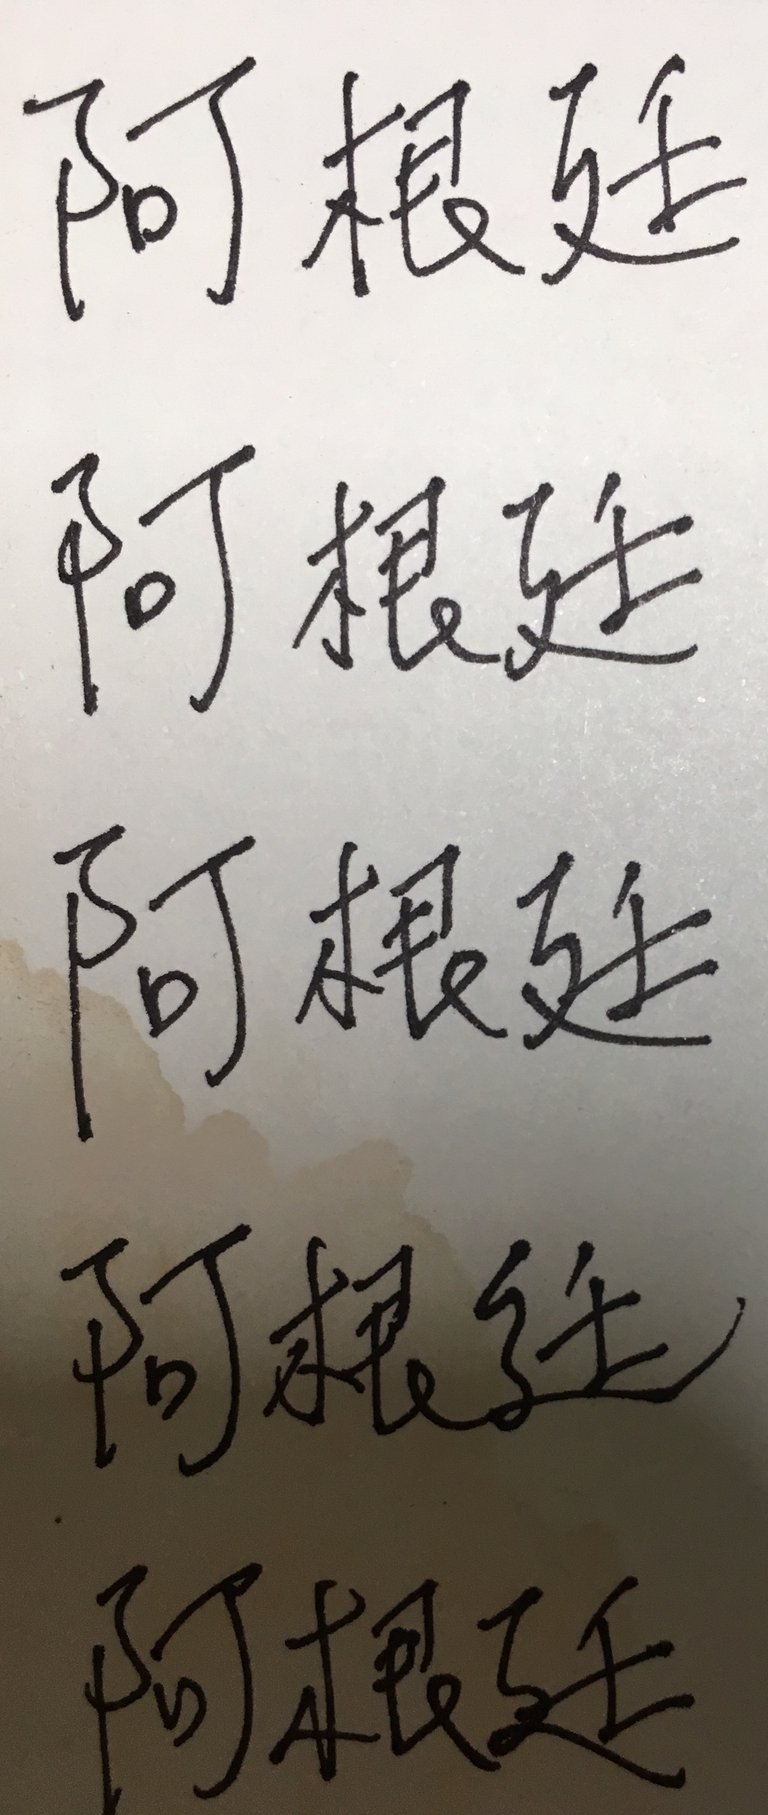 阿根廷
阿根廷
阿根廷
阿根廷
阿根廷